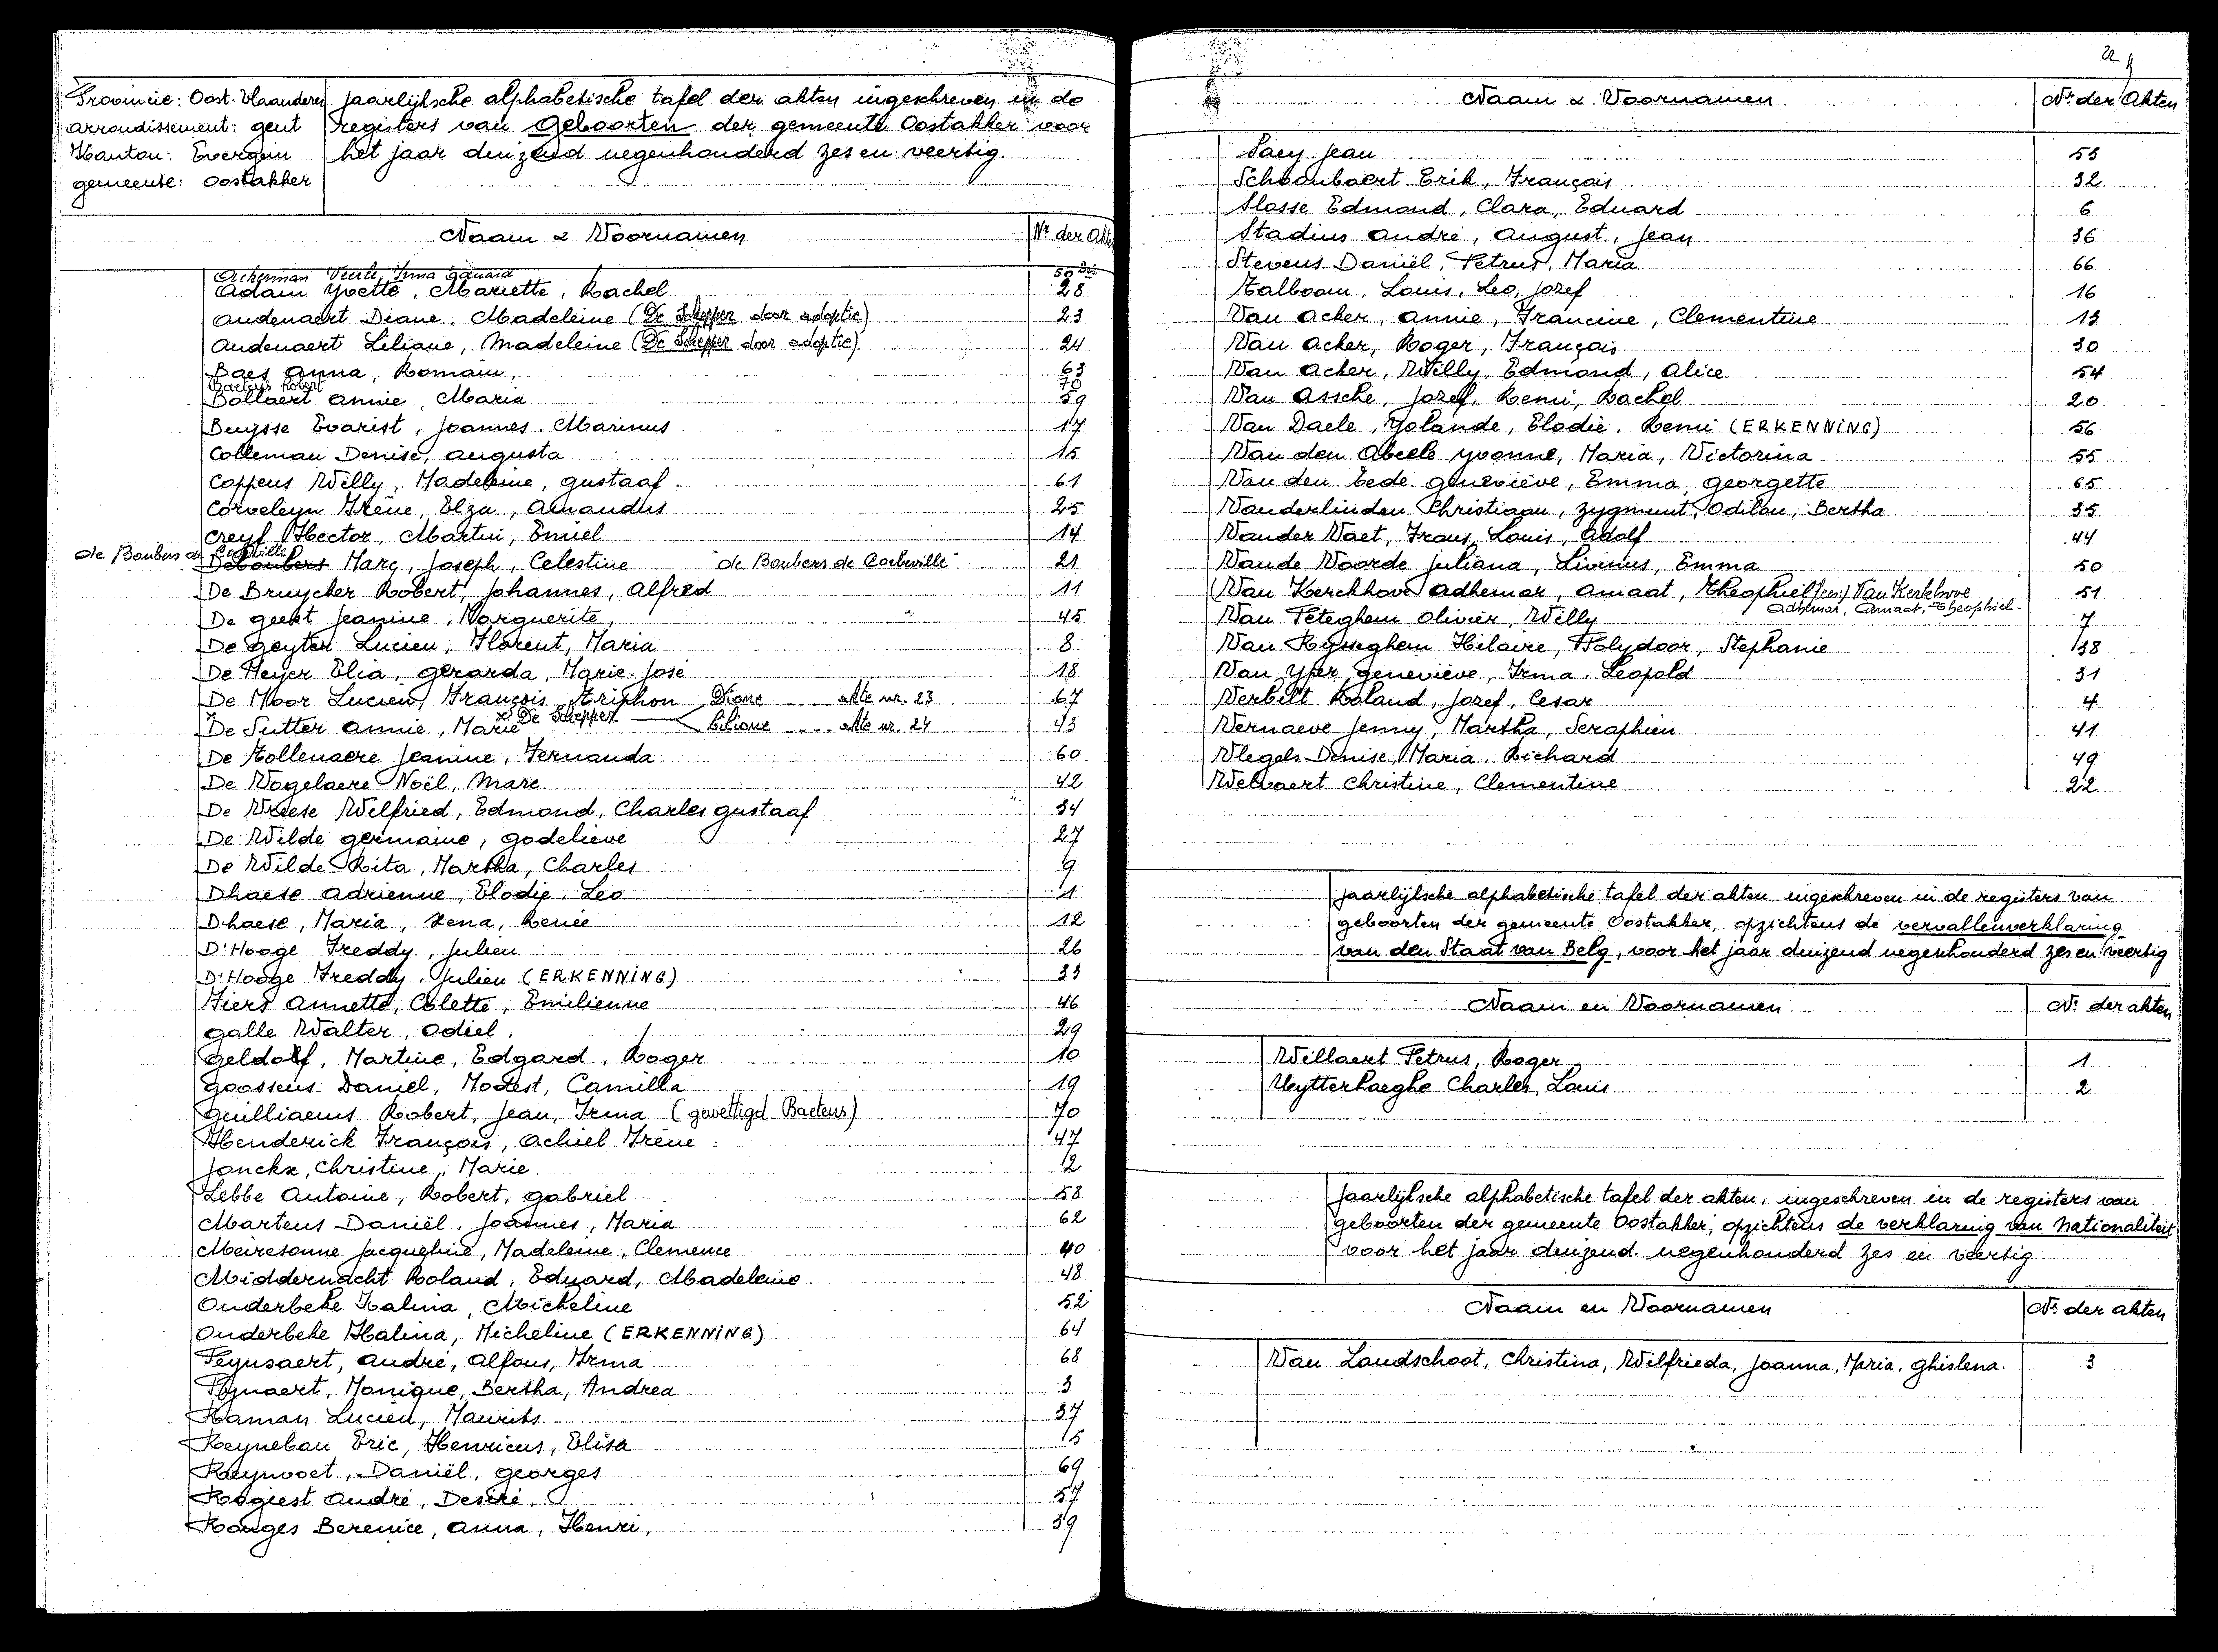 Provincie: Oost-Vlaanderen
arrondissement: gent
Kanton: Evergem
gemeente: Oostakker
Jaarlijksche alphabetische tafel der akten ingeschreven in de
registers van Geboorten der gemeente Oostakker voor
het jaar duizend negenhonderd zes en veertig.
Naam & Voornamen Nr. der Akten
Ackerman Veerle, Irma Eduard 50 bis
Adam Yvette, Mariette, Rachel 28
Audenaert Diane, Madeleine (De Schepper door adoptie) 23
Audenaert Liliane, Madeleine (De Schepper door adoptie) 24
Baes Anna, Romain, 63
Baeteus Robert 70
Bollaert Annie, Maria 59
Buysse Evarist, Joannes, Marinus 17
Colleman Denise, Augusta 15
Coppens Willy, Madeleine, Gustaaf 61
Corveleyn Irène, Elza, Amandus 25
Creyf Hector, Martin, Emiel 14
de Boubers de Corbeville Deboubers Marc, Joseph, Celestine "de Boubers de Corbeville" 21
De Bruycker Robert, Johannes, Alfred 11
De Geest Jeanine, Marguerite, 45
De Geyter Lucien, Florent, Maria 8
De Meyer Elia, Gerarda, Marie-José 18
De Moor Lucien, François, Triphon 67
De Schepper Diane akte nr. 23
Liliane akte nr. 24
De Sutter Annie, Marie 43
De Tollenaere Jeanine, Fernanda 60
De Vogelaere Noël, Marc 42
De Vreese Wilfried, Edmond, Charles Gustaaf 34
De Wilde Germaine, Godelieve 27
De Wilde Rita, Martha, Charles 9
Dhaese Adrienne, Elodie, Leo 1
Dhaese, Maria, Lena, Renée 12
D'Hooge Freddy, Julien 26
D'Hooge Freddy, Julien (ERKENNING) 33
Fiers Annette, Colette, Emilienne 46
Galle Walter, Odiel, 29
Geldolf, Martine, Edgard, Roger 10
Goossens Daniel, Modest, Camilla 19
Guilliaems Robert, Jean, Irma (gewettigd Baeteus) 70
Henderick François, Achiel Irène 47
Jonckx, Christine, Marie 2
Lebbe Antoine, Robert, Gabriel 58
Martens Daniël, Joannes, Maria 62
Meiresonne Jacqueline, Madeleine, Clemence 40
Middernacht Roland, Eduard, Madeleine 48
Onderbeke Halina, Micheline 52
Onderbeke Halina, Micheline (ERKENNING) 64
Peynsaert, André, Alfons, Irma 68
Pynaert, Monique, Bertha, Andrea 3
Raman Lucien, Maurits 37
Reynebau Eric, Henricus, Elisa 5
Reynvoet, Daniël, Georges 69
Rogiest André, Desiré, 57
Ronges Berenice, Anna, Henri, 39
Naam & Voornamen Nr. der Akten
Saey Jean 53
Schoonbaert Erik, François 32
Slosse Edmond, Clara, Eduard 6
Stadius André, August, Jean 36
Stevens Daniël, Petrus, Maria 66
Talboom, Louis, Leo, Jozef 16
Van Acker, Annie, Francine, Clementine 13
Van Acker, Roger, François 30
Van Acker, Willy, Edmond, Alice 54
Van Assche, Jozef, Remi, Rachel 20
Van Daele, Yolande, Elodie, Remi (ERKENNING) 56
Van den Abeele Yvonne, Maria, Victorina 55
Van den Eede Geneviève, Emma, Georgette 65
Vanderlinden Christiaan, Zygmunt, Odilon, Bertha 35
Vander Vaet, Frans, Louis, Adolf 44
Vande Voorde Juliana, Livinus, Emma 50
Van Kerckhove Adhemar, Amaat, Theophiel (lees) Van Kerkhove 51
Adhemar, Amaat, Theophiel.
Van Peteghem Olivier, Willy 7
Van Rysseghem Hilaire, Polydoor, Stephanie 38
Van Yper, Geneviève, Irma, Leopold 31
Verbilt Roland, Jozef, Cesar 4
Vernaeve Jenny, Martha, Seraphien 41
Vlegels Denise, Maria, Richard 49
Welvaert Christine, Clementine 22
Jaarlijksche alphabetische tafel der akten ingeschreven in de registers van
geboorten der gemeente Oostakker, opzichtens de vervallenverklaring
van den Staat van Belg, voor het jaar duizend negenhonderd zes en veertig
Naam en Voornamen Nr. der akten
Willaert Petrus, Roger 1
Uytterhaeghe Charles, Louis 2
Jaarlijksche alphabetische tafel der akten, ingeschreven in de registers van
geboorten der gemeente Oostakker, opzichtens de verklaring van Nationaliteit
voor het jaar duizend negenhonderd zes en veertig
Naam en Voornamen Nr. der akten
Van Landschoot, Christina, Wilfrieda, Joanna, Maria, Ghislena. 3